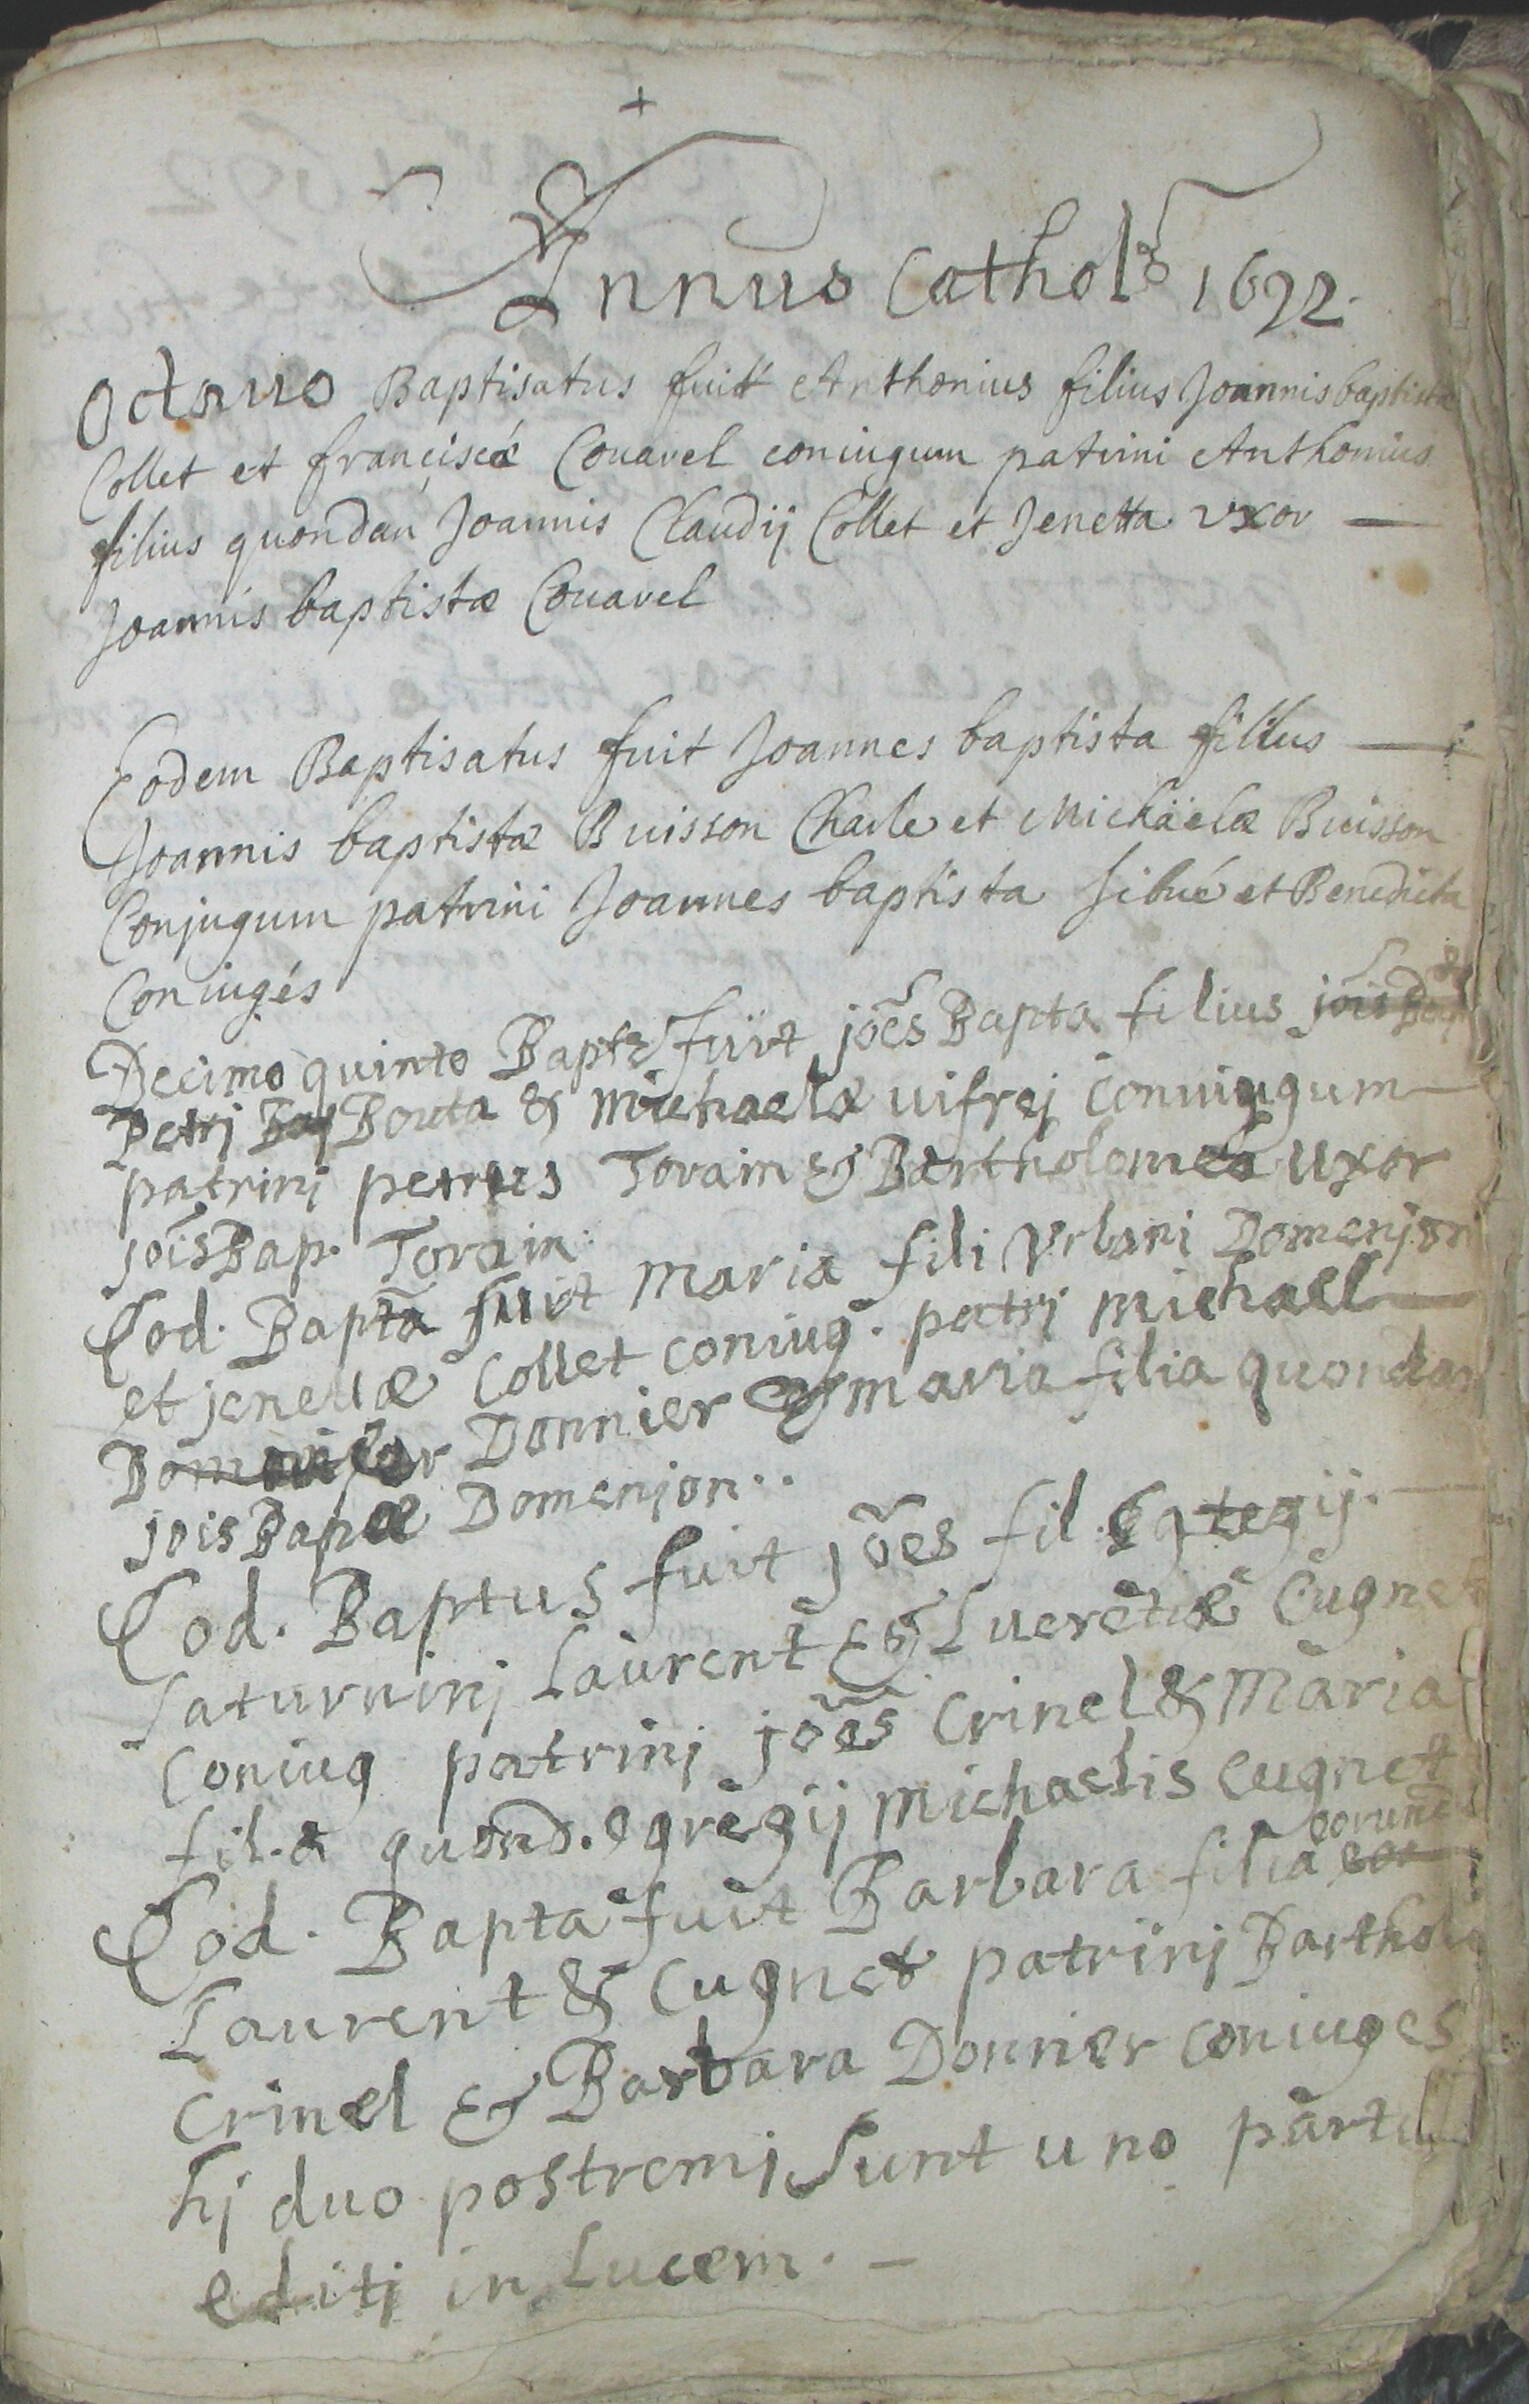 +
Annus Cathol^s 1692.
Octauo Baptisatus fuit Anthonius filius Joannis baptistæ
Collet et franciscæ Couarel coniugum patrini Anthonius
filius quondam Joannis Claudij Collet et Jenetta vxor —
Joannis baptistæ Couarel
Eodem Baptisatus fuit Joannes baptista filius —
Joannis baptistæ Buisson Charle et Michäelæ Buisson
Conjugum patrini Joannes baptista Sibué et Benedicta
Coniugés
Decimo quinto Bapt fuit jões Bapta filius jõis
Petrj Bouta & michaelæ uifrej Coniugum —
patrinj petrus Torain & Bartholomea uxor
jõis Bap. Torain.
Eod. Bapta fuit maria fili Vrbani Domenjon
et jenettæ Collet coniug. patrj michael —
Donnier & maria filia quondam
jois Bapæ Domenjon..
Eod. Baptus fuit jões fil. Egregij. —
Saturninj Laurent & Lucretiæ Cugnet
Coniug patrinj jões Crinel & Maria
fil.a quond. egregij michaelis cugnet
Eod. Bapta fuit Barbara filia eorund
Laurent & Cugnet patrinj Barthol
Crinel & Barbara Donnier coniuges
hj duo postremj Sunt uno partu
editj in Lucem. —